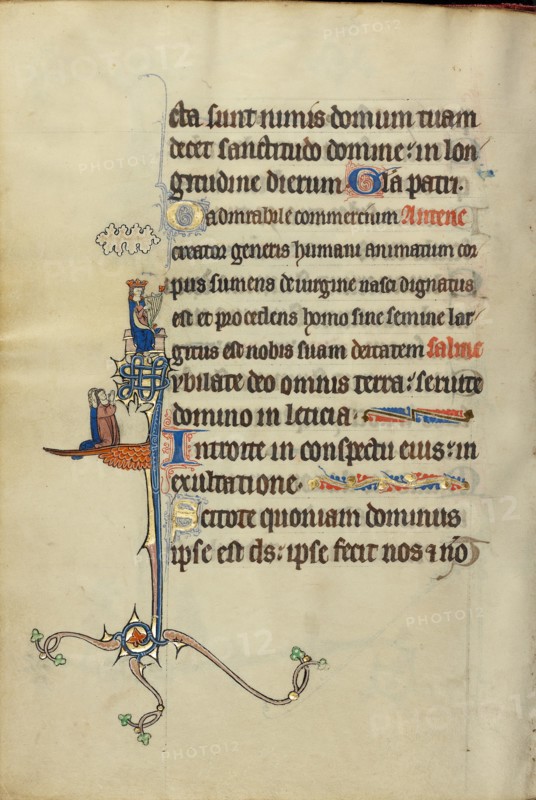 cta sunt nimis domum tuam
decet sanctitudo domine: in lon
gitudine dierum. Gła patri.
O admirabile commercium Antene
creator generis humani animatum cor
pus sumens de uirgine nasci dignatus
est et procedens homo sine semine lar
gitus est nobis suam deitatem salme
Iybilate deo omnis terra: seruite
domino in leticia.
Introite in conspectu eius: in
exultatione.
Scitote quoniam dominus
ipse est ds: ipse fecit nos ⁊ nō
PHOTO12